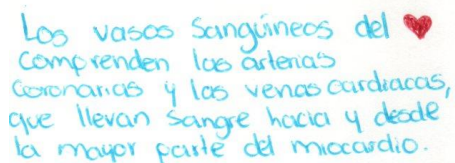 Los vasos Sangüineos del ❤
comprenden las arterias
Coronarias y las venas cardiacas,
que llevan sangre hacia y desde
la mayor parte del miocardio.